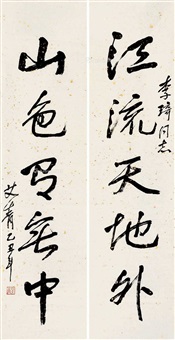 江流天地外
李琦同志
山色有无中
艾青乙丑年